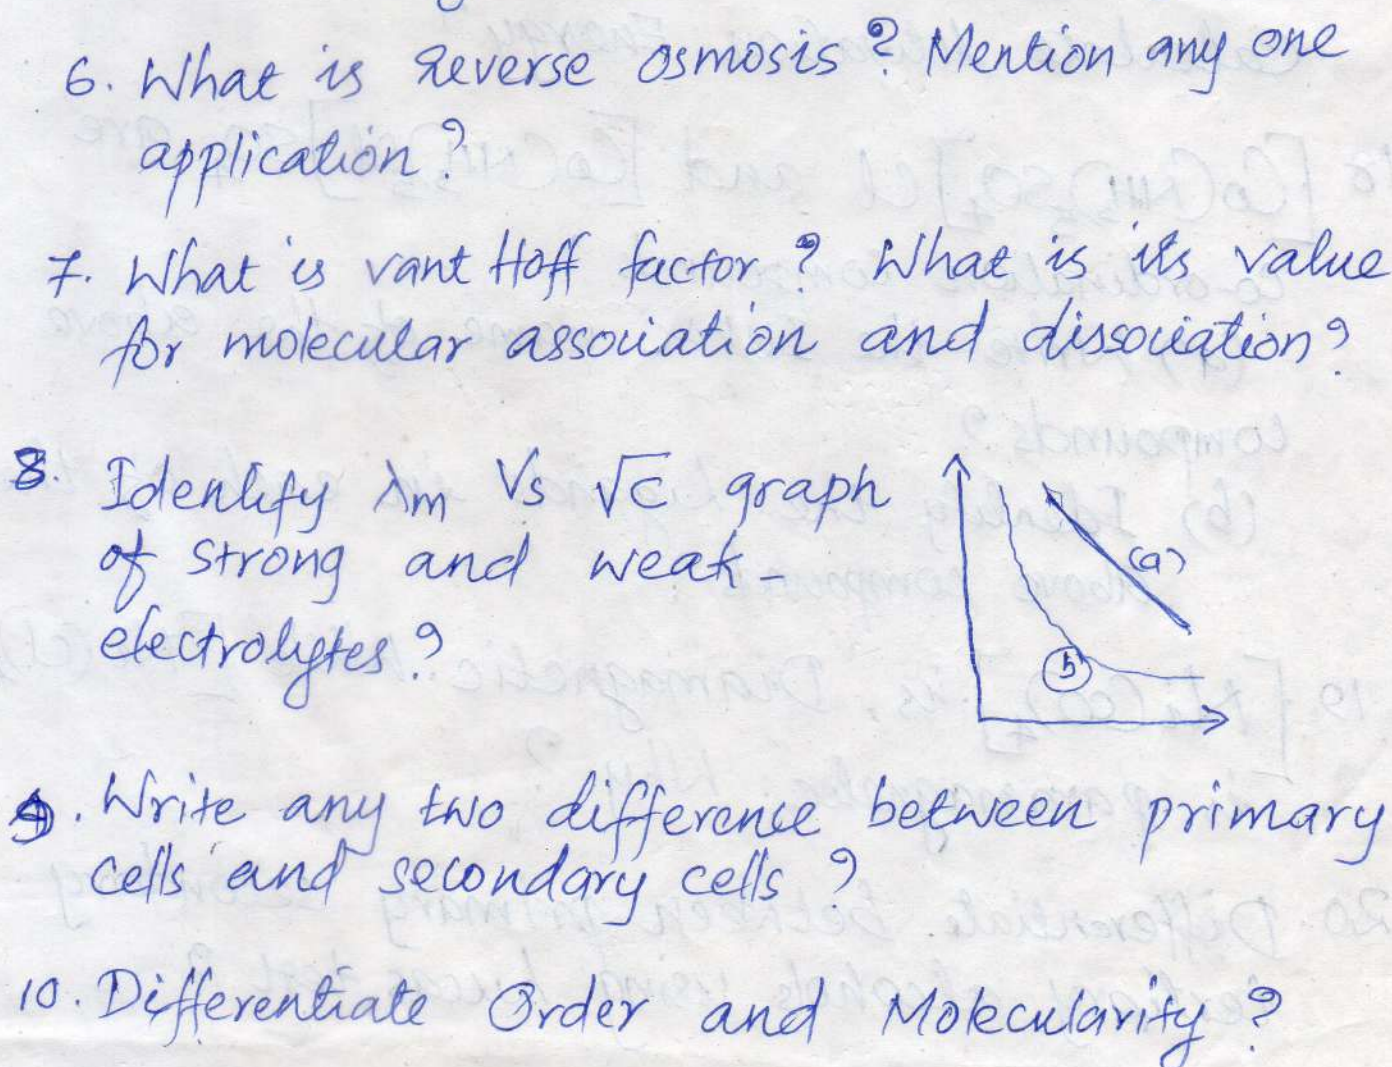 6. What is Reverse osmosis? Mention any one
application?
7. What is vant Hoff factor? What is its value
for molecular association and dissociation?
8. Identify λm Vs √C graph
of strong and weak-
electrolytes?
(a)
(b)
9. Write any two difference between primary
cells and secondary cells?
10. Differentiate Order and Molecularity?